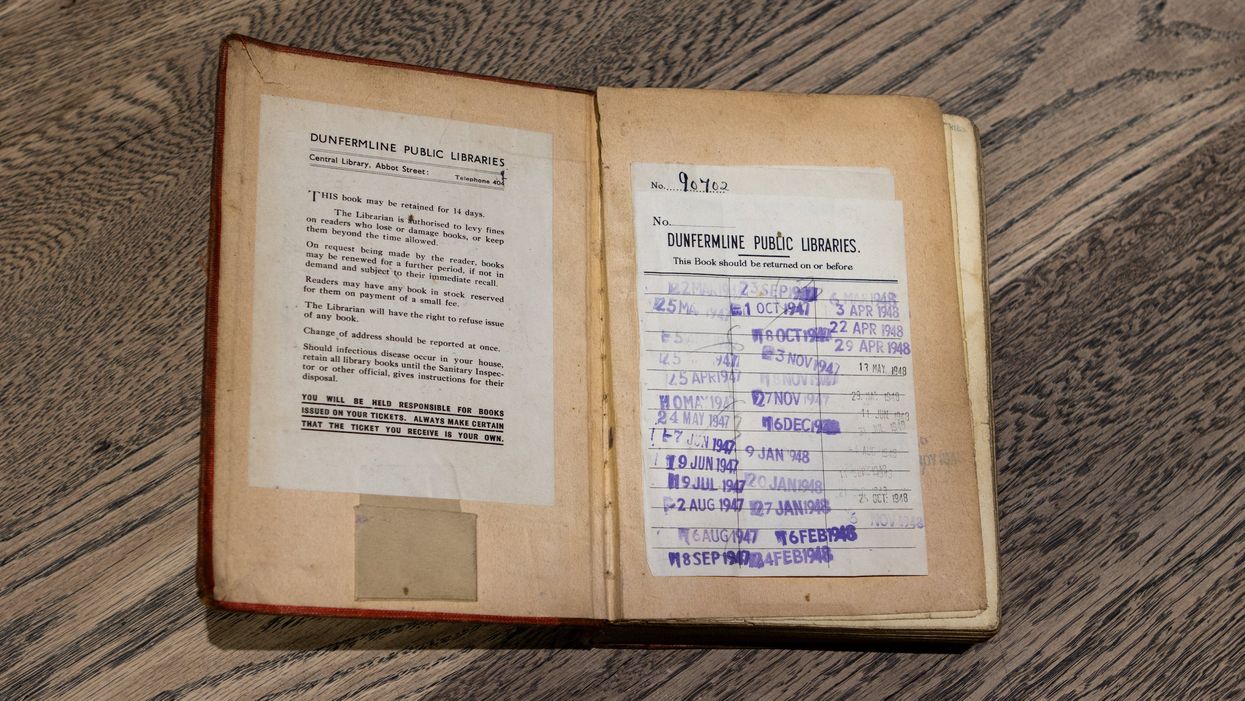 DUNFERMLINE PUBLIC LIBRARIES
Central Library, Abbot Street:
Telephone
THIS book may be retained for 14 days.
The Librarian is authorised to levy fines
on readers who lose or damage books, or keep
them beyond the time allowed.
On request being made by the reader, books
may be renewed for a further period, if not in
demand and subject to their immediate recall.
Readers may have any book in stock reserved
for them on payment of a small fee.
The Librarian will have the right to refuse issue
of any book.
Change of address should be reported at once.
Should infectious disease occur in your house,
retain all library books until the Sanitary Inspec-
tor or other official, gives instructions for their
disposal.
YOU WILL BE HELD RESPONSIBLE FOR BOOKS
ISSUED ON YOUR TICKETS. ALWAYS MAKE CERTAIN
THAT THE TICKET YOU RECEIVE IS YOUR OWN.
No. 90702
No.
DUNFERMLINE PUBLIC LIBRARIES.
This Book should be returned on or before
25 APR 1947
10 MAY 1947
24 MAY 1947
7 JUN 1947
19 JUN 1947
19 JUL 1947
2 AUG 1947
16 AUG 1947
18 SEP 1947
23 SEP 1947
1 OCT 1947
18 OCT 1947
3 NOV 1947
27 NOV 1947
16 DEC
9 JAN 1948
20 JAN 1948
27 JAN 1948
16 FEB 1948
24 FEB 1948
6 MAR 1948
3 APR 1948
22 APR 1948
29 APR 1948
13 MAY 1948
25 OCT 1948
NOV 1948